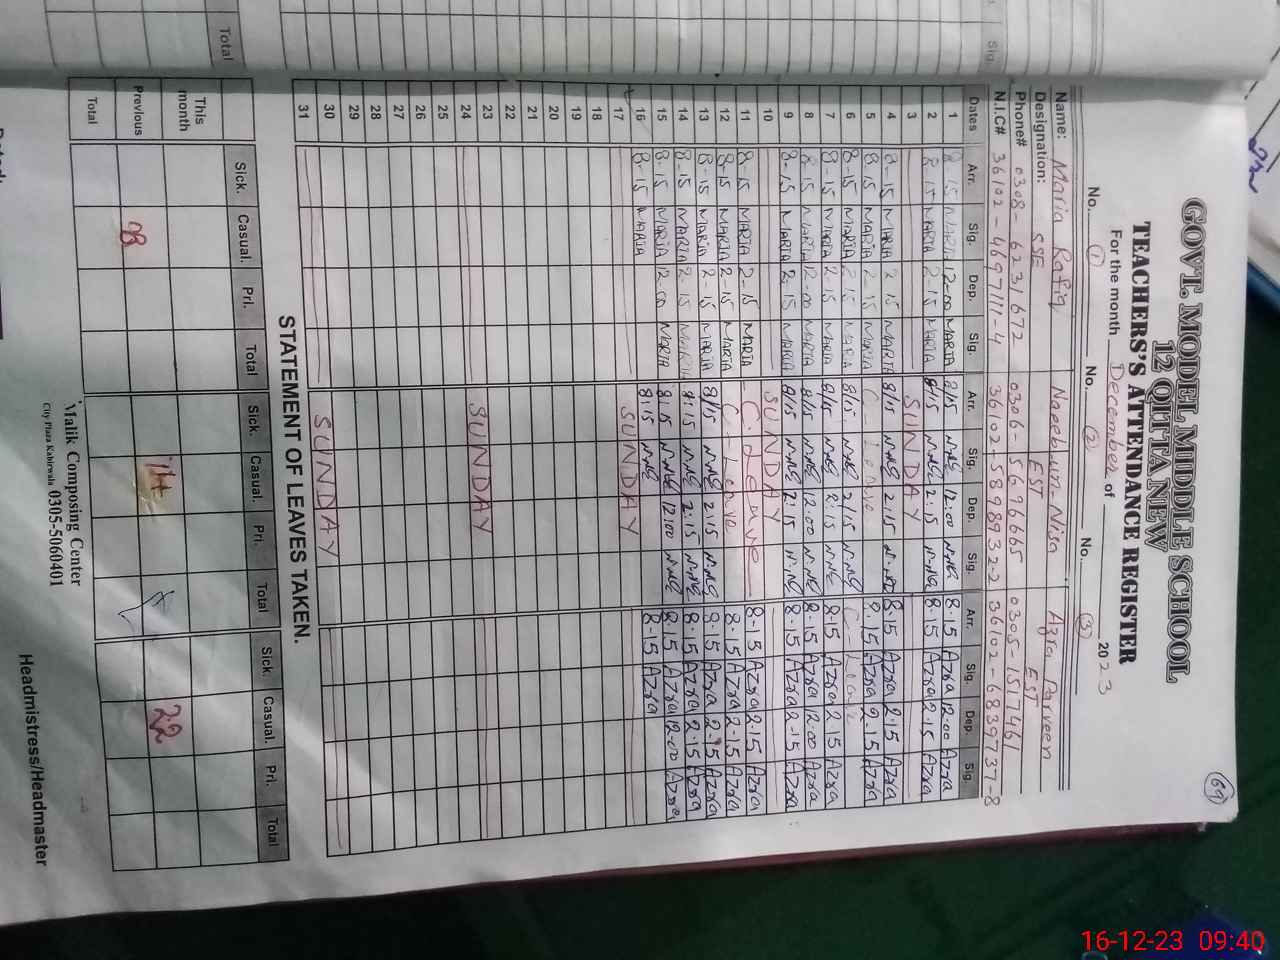 69
GOVT. MODEL MIDDLE SCHOOL
12 QITTA NEW
TEACHERS'S ATTENDANCE REGISTER
For the month December of 2023
No. 1 No. 2 No. 3
Name: Maria Rafiq Naeeb-un-Nisa Azra Parveen
Designation: SSE EST EST
Phone# 0308-6231672 0306-5696665 0305-1517461
N.I.C# 36102-4697111-4 36102-5898932-2 36102-6839737-8
Dates Arr. Sig. Dep. Sig. Arr. Sig. Dep. Sig. Arr. Sig. Dep. Sig.
1 8-15 MARIA 12-00 MARIA 8/15 N.NE 12:00 N.NE 8.15 Azra 12.00 Azra
2 8-15 MARIA 2-15 MARIA 8/15 N.NE 2:15 N.NE 8.15 Azra 2.15 Azra
3 SUNDAY
4 8-15 MARIA 2-15 MARIA 8/15 N.NE 2:15 N.NE 8.15 Azra 2.15 Azra
5 8-15 MARIA 2-15 MARIA C-Leave 8.15 Azra 2.15 Azra
6 8-15 MARIA 2-15 MARIA 8/15 N.NE 2/15 N.NE C-Leave
7 8-15 MARIA 2-15 MARIA 8/15 N.NE 2:15 N.NE 8.15 Azra 2.15 Azra
8 8-15 MARIA 12-00 MARIA 8/15 N.NE 12:00 N.NE 8.15 Azra 12.00 Azra
9 8-15 MARIA 2-15 MARIA 8/15 N.NE 2:15 N.NE 8.15 Azra 2-15 Azra
10 SUNDAY
11 8-15 MARIA 2-15 MARIA C-Leave 8-15 Azra 2.15 Azra
12 8-15 MARIA 2-15 MARIA C-Leave 8.15 Azra 2-15 Azra
13 8-15 MARIA 2-15 MARIA 8/15 N.NE 2.15 N.NE 8.15 Azra 2.15 Azra
14 8-15 MARIA 2-15 MARIA 8:15 N.NE 2:15 N.NE 8.15 Azra 2.15 Azra
15 8-15 MARIA 12-00 MARIA 8:15 N.NE 12:00 N.NE 8.15 Azra 12-00 Azra
16 8-15 MARIA 8:15 N.NE 8-15 Azra
17 SUNDAY
18
19
20
21
22
23
24 SUNDAY
25
26
27
28
29
30
31 SUNDAY
STATEMENT OF LEAVES TAKEN.
Sick. Casual. Pri. Total Sick. Casual. Pri. Total Sick. Casual. Pri. Total
This month
Previous 08 14 22
Total
Malik Composing Center
City Plaza Kabirwala 0305-5060401
Headmistress/Headmaster
Total Sig.
16-12-23 09:40